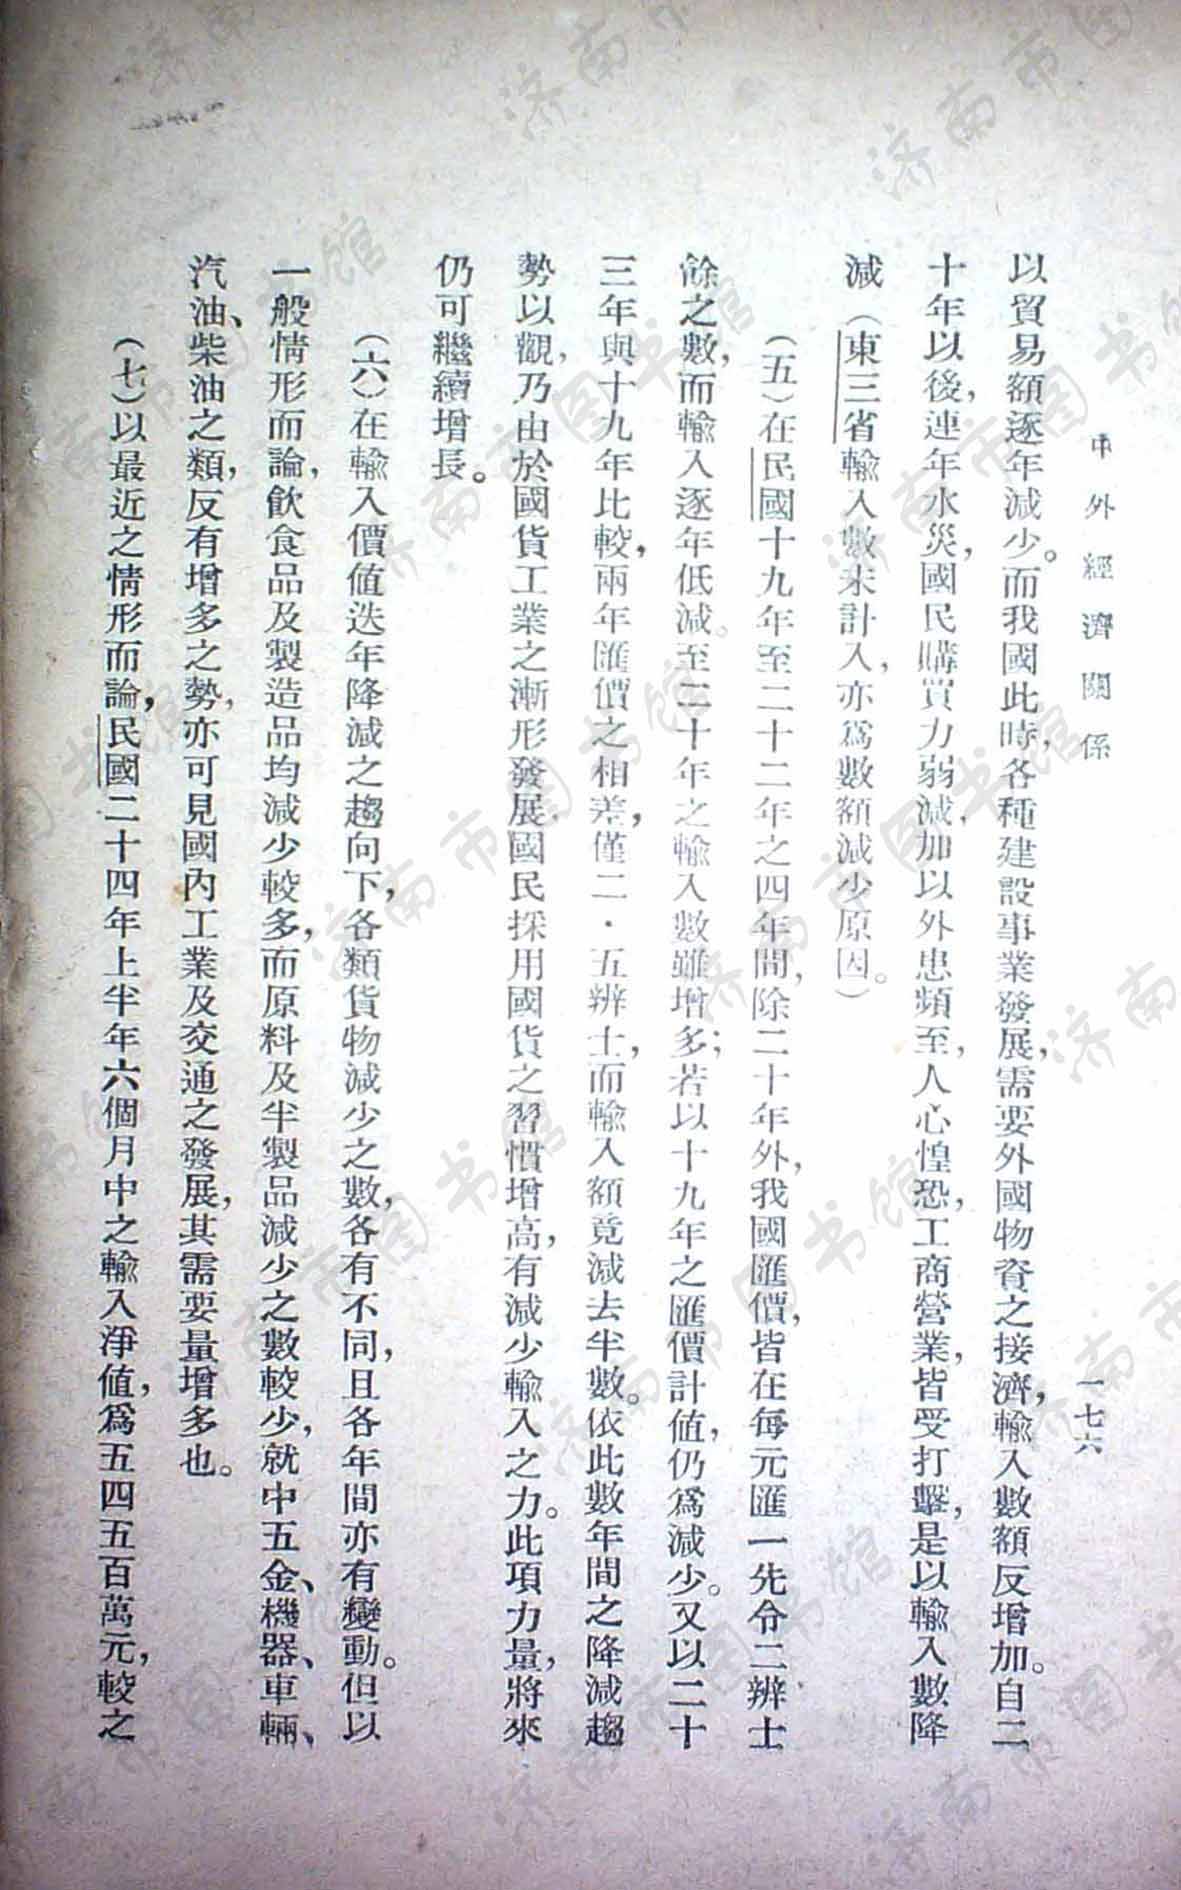 中外經濟關係
一七六
以貿易額逐年減少。而我國此時，各種建設事業發展，需要外國物資之接濟，輸入數額反增加。自二
十年以後，連年水災，國民購買力弱減，加以外患頻至，人心惶恐，工商營業，皆受打擊，是以輸入數降
減（東三省輸入數未計入，亦爲數額減少原因。）
（五）在民國十九年至二十二年之四年間，除二十年外，我國匯價，皆在每元匯一先令二辨士
餘之數，而輸入逐年低減。至二十年之輸入數雖增多；若以十九年之匯價計值，仍爲減少。又以二十
三年與十九年比較，兩年匯價之相差，僅二·五辨士，而輸入額竟減去半數。依此數年間之降減趨
勢以觀，乃由於國貨工業之漸形發展，國民採用國貨之習慣增高，有減少輸入之力。此項力量，將來
仍可繼續增長。
（六）在輸入價值迭年降減之趨向下，各類貨物減少之數，各有不同，且各年間亦有變動。但以
一般情形而論，飲食品及製造品均減少較多，而原料及半製品減少之數較少，就中五金、機器、車輛、
汽油、柴油之類，反有增多之勢，亦可見國內工業及交通之發展，其需要量增多也。
（七）以最近之情形而論，民國二十四年上半年六個月中之輸入淨值，爲五四五百萬元，較之
济南市图书馆